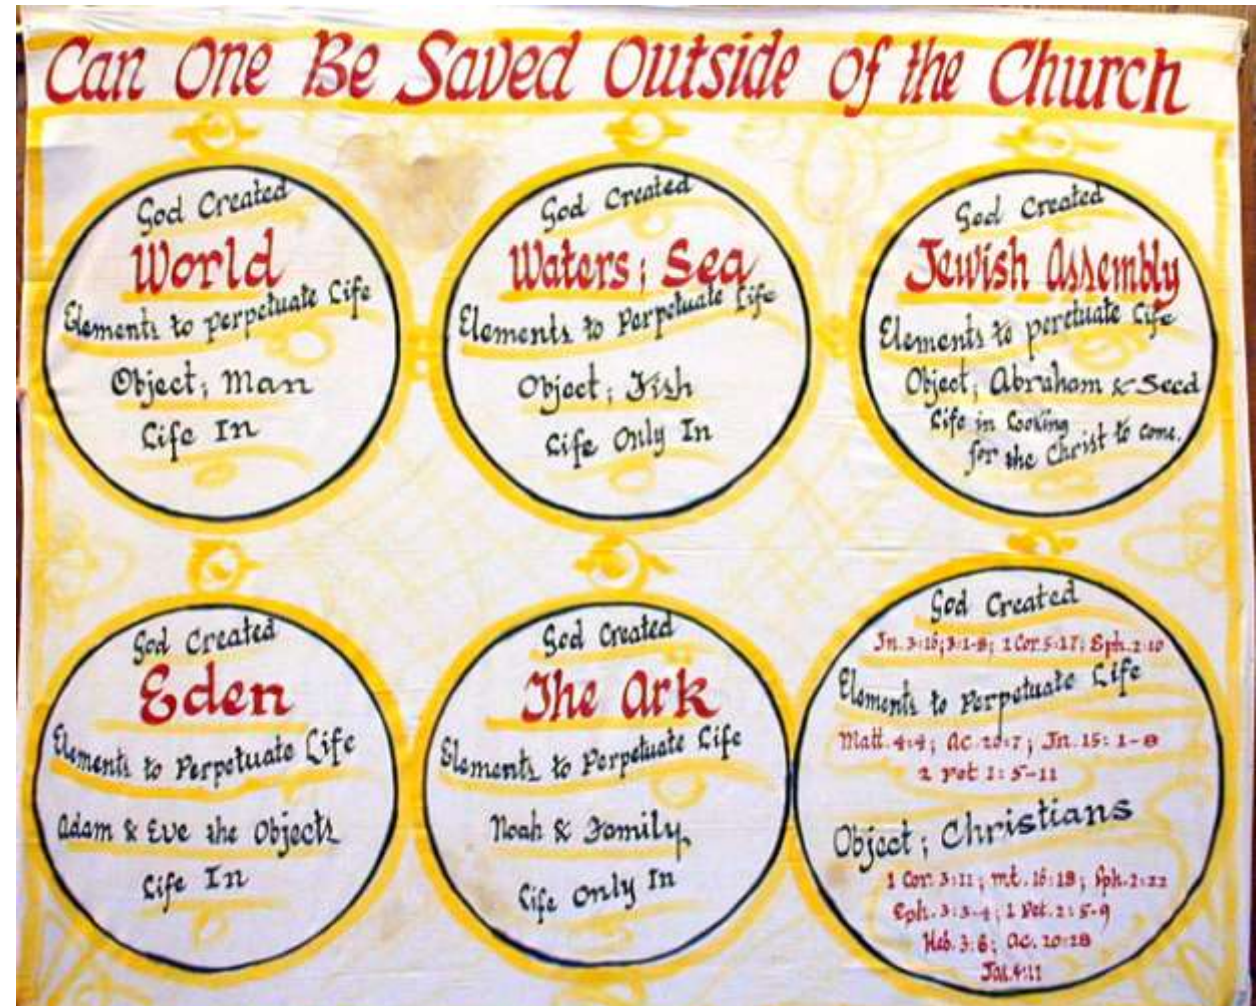 Can One Be Saved Outside of the Church
God Created
World
Elements to Perpetuate Life
Object; Man
Life In
God Created
Waters; Sea
Elements to Perpetuate Life
Object; Fish
Life Only In
God Created
Jewish Assembly
Elements to peretuate Life
Object; Abraham & Seed
Life in Looking
for the Christ to Come.
God Created
Eden
Elements to Perpetuate Life
Adam & Eve the Objects
Life In
God Created
The Ark
Elements to Perpetuate Life
Noah & Family
Life Only In
God Created
Jn. 3:16; 3:1-8; 2 Cor. 5:17; Eph. 2:10
Elements to Perpetuate Life
Matt. 4:4; Ac. 20:7; Jn. 15: 1-8
2 Pet 1: 5-11
Object; Christians
1 Cor. 3:11; mt. 16:18; Eph. 2:22
Eph. 3:3-4; 1 Pet. 2:5-9
Heb. 3:6; Ac. 20:28
4:12